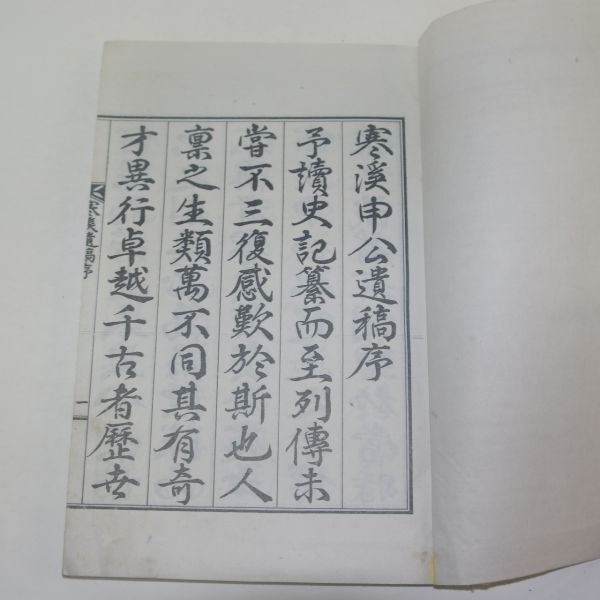 寒溪申公遺稿序
予讀史記纂而至列傳未
嘗不三復感歎於斯也人
禀之生類萬不同其有奇
才異行卓越千古者歷世
寒溪遺稿序
一